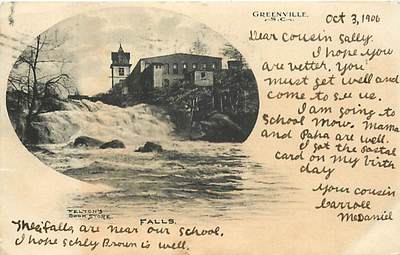 GREENVILLE.
S.C.
Oct 3, 1906
Dear Cousin Sally.
I hope you
are vetter. You
must get well and
come to see us.
I am going to
School now. Mama
and Papa are well.
I got the postal
card on my birth
day
Your cousin
Carroll
McDaniel
FELTON'S
BOOK STORE.
FALLS.
These falls are near our school.
I hope Schly Brown is well.